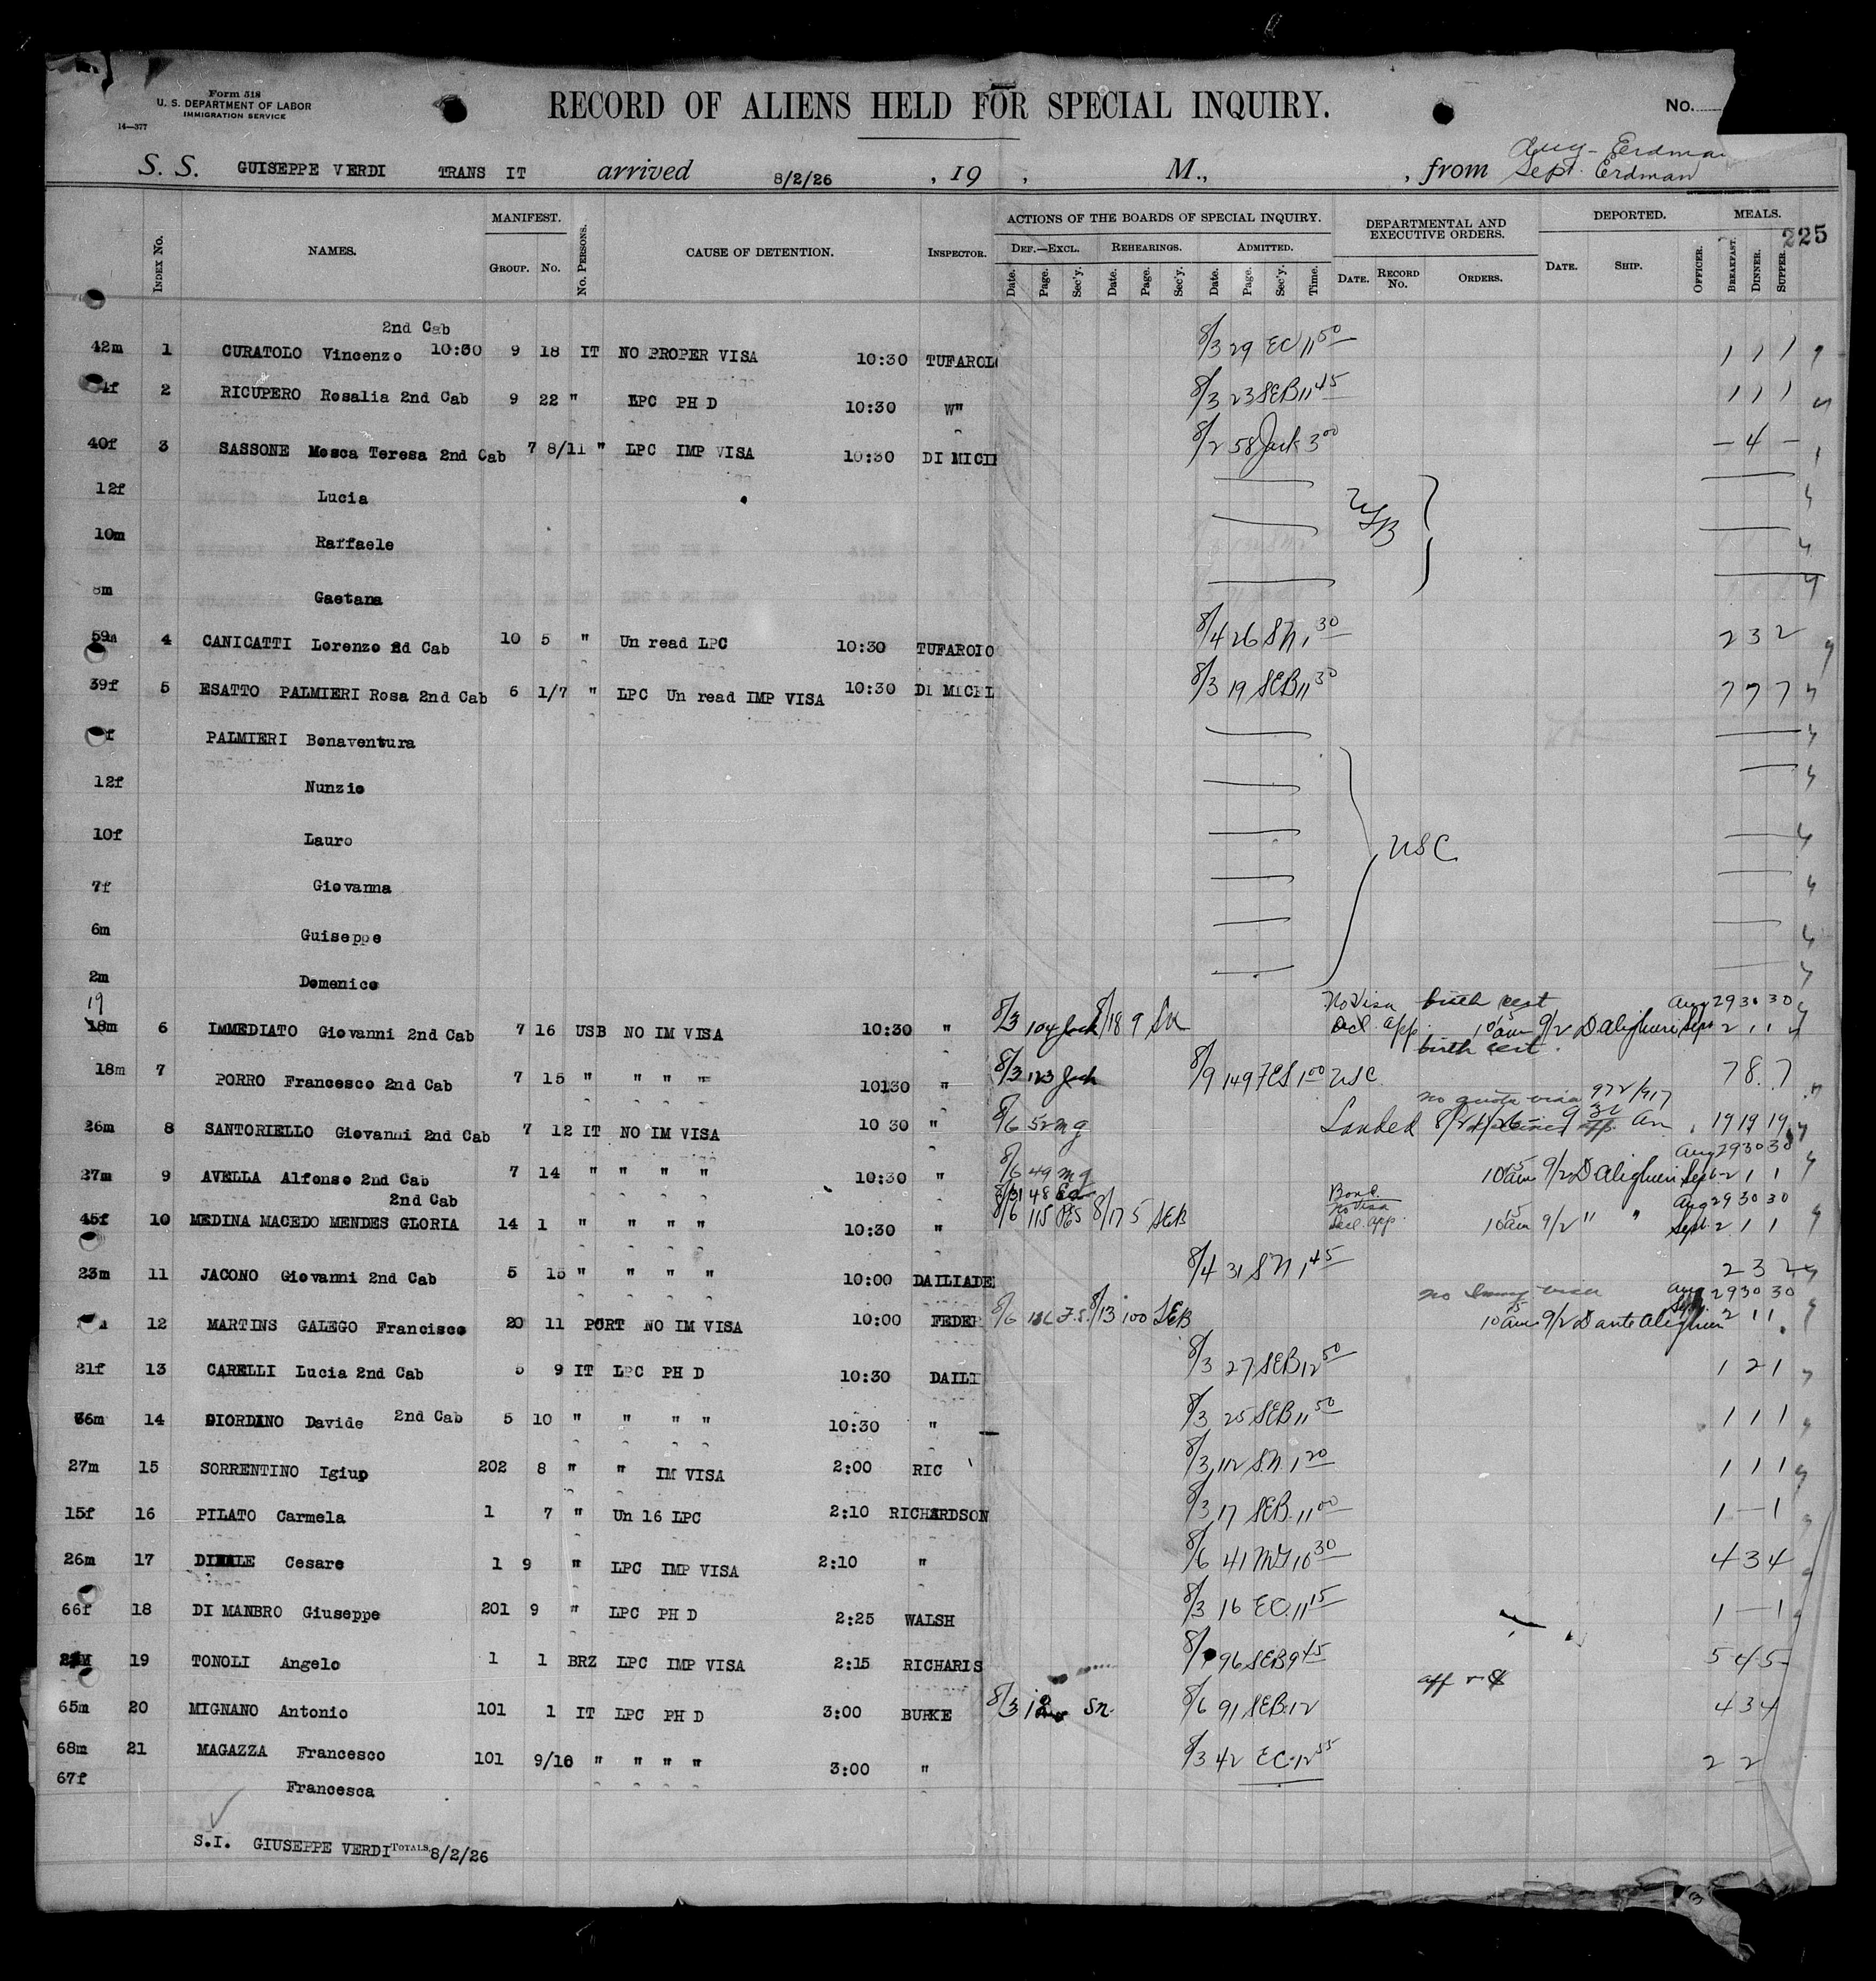 Form 518
U. S. DEPARTMENT OF LABOR
IMMIGRATION SERVICE
14—377
RECORD OF ALIENS HELD FOR SPECIAL INQUIRY.
No.
Aug - Erdman
S. S. GUISEPPE VERDI TRANS IT arrived 8/2/26 , 19 , M., , from Sept. Erdman
225
Index No. NAMES. MANIFEST. GROUP. No. No. PERSONS. CAUSE OF DETENTION. INSPECTOR. ACTIONS OF THE BOARDS OF SPECIAL INQUIRY. DEF.—EXCL. Date. Page. Sec'y. REHEARINGS. Date. Page. Sec'y. ADMITTED. Date. Page. Sec'y. Time. DEPARTMENTAL AND EXECUTIVE ORDERS. DATE. RECORD No. ORDERS. DEPORTED. DATE. SHIP. OFFICER. MEALS. BREAKFAST. DINNER. SUPPER.
2nd Cab
42m 1 CURATOLO Vincenzo 10:30 9 18 IT NO PROPER VISA 10:30 TUFAROLO 8/3 29 EC 11 50 1 1 1
2 RICUPERO Rosalia 2nd Cab 9 22 " LPC PH D 10:30 W" 8/3 23 SEB 11 45 1 1 1
40f 3 SASSONE Mosca Teresa 2nd Cab 7 8/11 " LPC IMP VISA 10:30 DI MICH 8/2 58 Jack 3 00 — 4 —
12f Lucia
10m Raffaele USB
8m Gaetana
59m 4 CANICATTI Lorenzo 2d Cab 10 5 " Un read LPC 10:30 TUFAROIO 8/4 26 SN 1 30 2 3 2
39f 5 ESATTO PALMIERI Rosa 2nd Cab 6 1/7 " LPC Un read IMP VISA 10:30 DI MICEL 8/3 19 SEB 11 30 7 7 7
f PALMIERI Bonaventura
12f Nunzio
10f Lauro USC
7f Giovanna
6m Guiseppe
2m Domenico
19 No Visa birth cert Aug 29 30 30
18m 6 IMMEDIATO Giovanni 2nd Cab 7 16 USB NO IM VISA 10:30 " 8/3 104 Jack 8/18 9 SN Decl. app. 10 15 am 9/2 D Alighieri Sept 2 1 1
birth cert.
18m 7 PORRO Francesco 2nd Cab 7 15 " " " " 10130 " 8/3 123 Jack 8/9 149 FES 1 00 USC 7 8 7
no quota visa 972/917
26m 8 SANTORIELLO Giovanni 2nd Cab 7 12 IT NO IM VISA 10 30 " 8/6 52 mg Landed 19 19 19
Aug 29 30 30
27m 9 AVELLA Alfonso 2nd Cab 7 14 " " " " 10:30 " 8/6 49 mg 10 15 am 9/2 D Alighieri Sept 2 1 1
2nd Cab No Visa Aug 29 30 30
45f 10 MEDINA MACEDO MENDES GLORIA 14 1 " " " " 10:30 " 8/6 115 8/17 5 SEB Decl. app. 10 15 am 9/2 " " Sept. 2 1 1
23m 11 JACONO Giovanni 2nd Cab 5 15 " " " " 10:00 DAILIADE 8/4 31 SN 1 45 2 3 2
no Immig visa Aug 29 30 30
12 MARTINS GALEGO Francisco 20 11 PORT NO IM VISA 10:00 FEDER 8/6 F.S. 8/13 100 SEB 10 15 am 9/2 Dante Alighieri 2 1 1
21f 13 CARELLI Lucia 2nd Cab 5 9 IT LPC PH D 10:30 DAILI 8/3 27 SEB 12 50 1 2 1
36m 14 GIORDANO Davide 2nd Cab 5 10 " " " " 10:30 " 8/3 25 SEB 11 50 1 1 1
27m 15 SORRENTINO Igiup 202 8 " " IM VISA 2:00 RIC 8/3 112 S.N. 1 20 1 1 1
15f 16 PILATO Carmela 1 7 " Un 16 LPC 2:10 RICHARDSON 8/3 17 SEB. 11 00 1 — 1
26m 17 Cesare 1 9 " LPC IMP VISA 2:10 " 8/6 41 MG 10 30 4 3 4
66f 18 DI MANBRO Giuseppe 201 9 " LPC PH D 2:25 WALSH 8/3 16 EC. 11 15 1 — 1
19 TONOLI Angelo 1 1 BRZ LPC IMP VISA 2:15 RICHARIS 96 SEB 9 45 5 4 5
65m 20 MIGNANO Antonio 101 1 IT LPC PH D 3:00 BURKE 8/3 Sn. 8/6 91 SEB. 12 4 3 4
68m 21 MAGAZZA Francesco 101 9/10 " " " " 3:00 " 8/3 42 EC. 12 55 2 2
67f Francesca
S.I. GIUSEPPE VERDI TOTALS 8/2/26